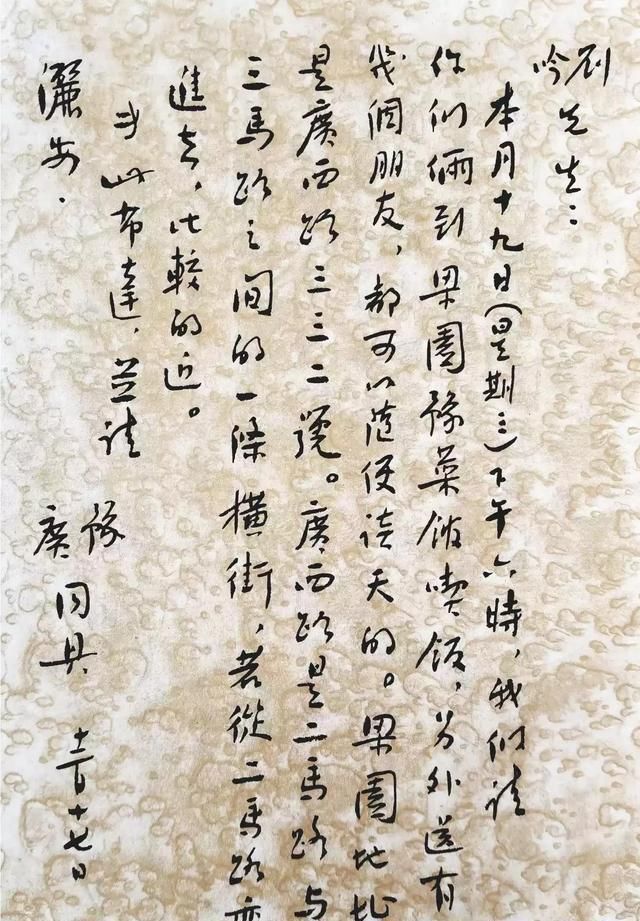 刘吟 先生：
本月十九日（星期三）下午六時，我们請
你们俩到梁園豫菜馆喫饭，另外还有
幾個朋友，都可以随便談天的。梁園地址
是廣西路三三二號。廣西路是二馬路与
三馬路之间的一條橫街，若從二馬路弯
進去，比較的近。
专此布達，並請
儷安。
豫廣 同具 十二月十七日